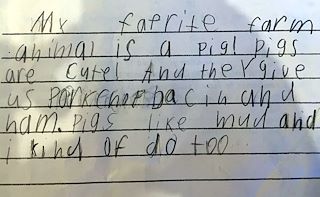 My faerite farm
animal is a pig! pigs
are cute! And they give
us porkchop bacin and
ham. pigs like mud and
i kind of do too